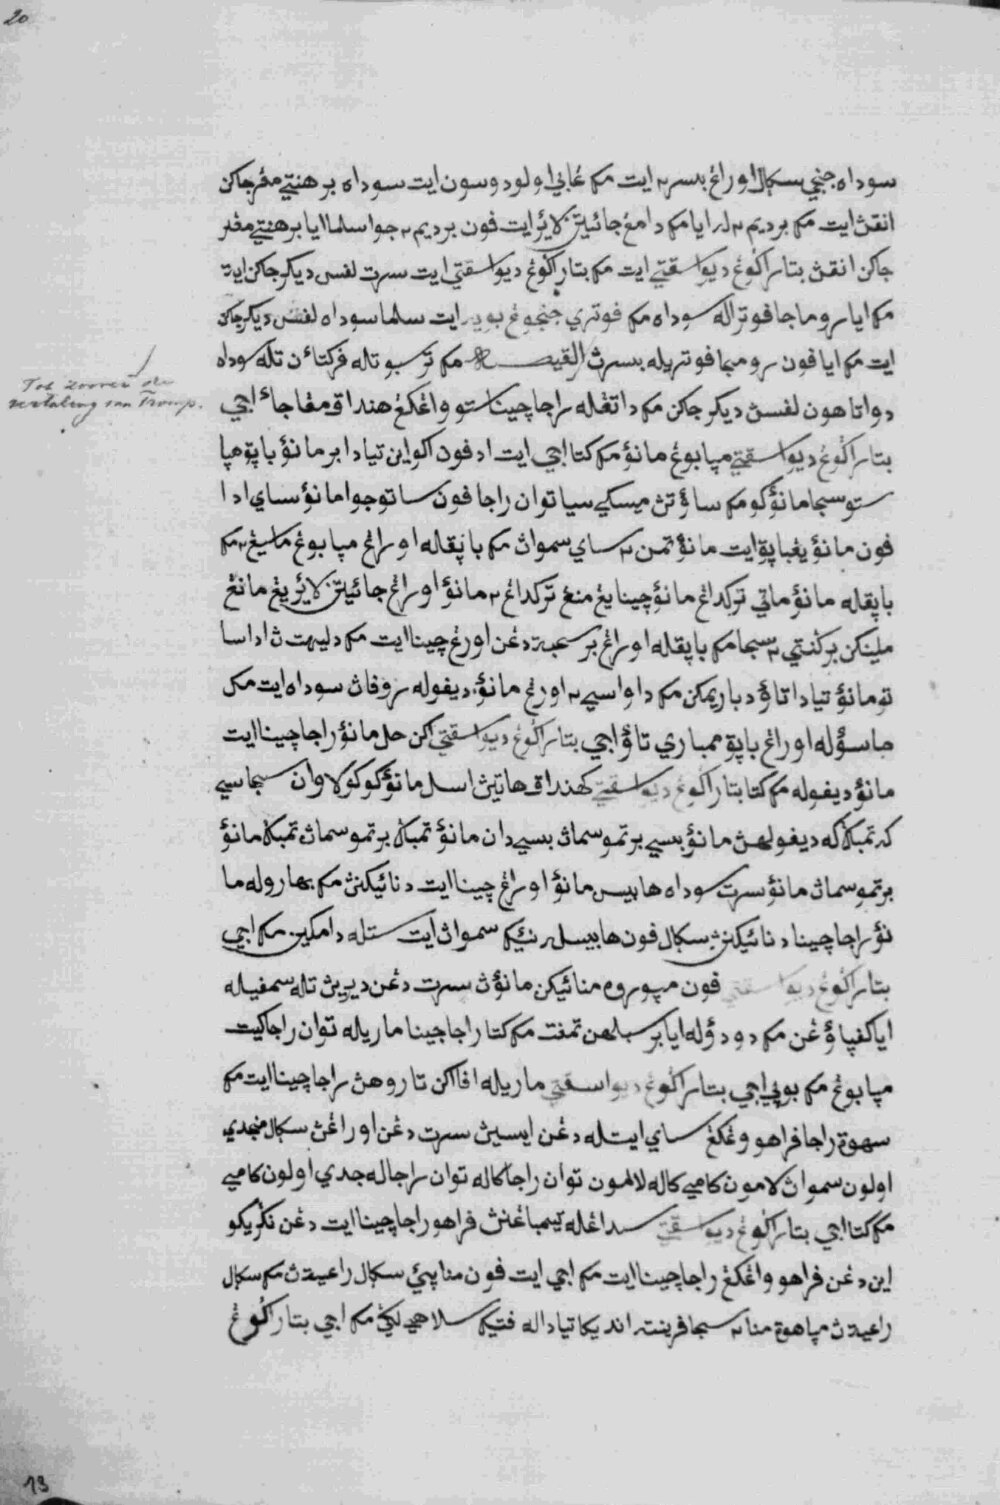 20
سوداه جنجي سكال اورڠ بسر٢ ايت مك غاني اولو دوسون ايت سوداه برهنتي مڤرجاكن
انقڽ ايت مك برديم٢ له ايا مك دامڠ جائيتن لاير ايت ڤون برديم٢ جوا سلما ايا برهنتي مڤر
جاكن انقڽ بتار اڬوڠ ديوا سقتي ايت مك بتار اڬوڠ ديوا سقتي ايت سرت لڤس ديكرجاكن ايت
مك ايا سروم اجا ڤوترا له سوداه مك ڤوتري جنجوڠ بوير ايت سلما سوداه لڤس ديكرجاكن
ايت مك ايا ڤون سروم اجا ڤوتري له بسرڽ القيصه مك ترسبوتله ڤركتاءن تله سوداه
دوا تاهون لڤسڽ ديكرجاكن مك داتڠله راجا چينا ستو واڠكڠ هنداق مڠاجاء اجي
Tot zoover de
vertaling van Tromp.
بتار اڬوڠ ديوا سقتي مپابوڠ مانؤ مك كتا اجي ايت اد ڤون اكو اين تيادا برمانؤ باپق هپا
ستو سجا مانؤكو مك ساؤتڽ مسكي سيا توان راجا ڤون ساتو جوا مانؤ ساي ادا
ڤون مانؤ يڠ باپق ايت مانؤ تمن٢ ساي سموان مك باپقله اورڠ مپابوڠ ماسيڠ٢ مك
باپقله مانؤ ماتي تركداڠ مانؤ چينا يڠ منڠ تركداڠ٢ مانؤ اورڠ جائيتن لاير يڠ مانڠ
ملينكن برڬنتي٢ سجا مك باپقله اورڠ برسحبة دڠن اورڠ چينا ايت مك دليهت ڽ ادا سا
تو مانؤ تيادا تاؤ دباريمكن مك داواسيي٢ اورڠ مانؤ ديڤوله روڤاڽ سوداه ايت مك
ماسؤله اورڠ باپق ممباري تاؤ اجي بتار اڬوڠ ديوا سقتي اكن حل مانؤ راجا چينا ايت
مانؤ ديڤوله مك كتا بتار اڬوڠ ديوا سقتي كهنداق هاتيڽ اسل مانؤكو كولاوان سجا سي
كه تمباڬكه ديڤولهڽ مانؤ بسي برتمو سماڽ بسي دان مانؤ تمباڬ برتمو سماڽ تمباڬ مانؤ
برتمو سماڽ مانؤ سرت سوداه هابيس مانؤ اورڠ چينا ايت دنائيكنڽ مك بهارو له ما
نؤ راجا چينا دنائيكنڽ سكال ڤون هابيسله نئيك سموان ايت ستله دامكين مك اجي
بتار اڬوڠ ديوا سقتي ڤون مپوروه منائيكن مانؤڽ سرت دڠن ديريڽ تله سمڤيله
ايا كڤپاؤڠن مك دودؤله ايا برسبلهن تمڤت مك كتا راجا چينا ماريله توان راجا كيت
مپابوڠ مك بوپي اجي بتار اڬوڠ ديوا سقتي ماريله اڤا اكن تاروهڽ راجا چينا ايت مك
سهوت راجا ڤراهو وڠكڠ ساي ايتله دڠن ايسيڽ سرت دڠن اورڠڽ سكال منجدي
اولون سموان كلامون كامي كاله لامون توان راجا كاله توان راجا له جدي اولون كامي
مك كتا اجي بتار اڬوڠ ديوا سقتي سداڠله تيمباڠنڽ ڤراهو راجا چينا ايت دڠن نڬريكو
اين دڠن ڤراهو واڠكڠ راجا چينا ايت مك اجي ايت ڤون مناپي سكال رعية ڽ مك سكال
رعية ڽ مپاهوت منا٢ سجا ڤرينته اندیكا تيادا له ڤتيك سلاهي لاڬي مك اجي بتار اڬوڠ
13